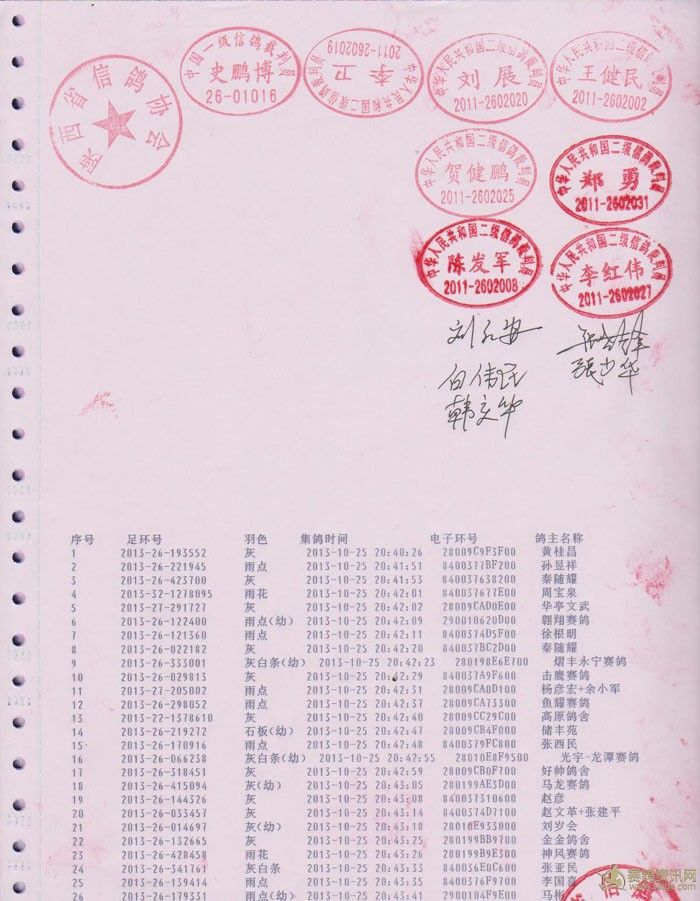 陕西省信鸽协会
中国一级信鸽裁判员
史鹏博
26-01016
中华人民共和国二级信鸽裁判员
李卫
2011-2602019
中华人民共和国二级信鸽裁判员
刘展
2011-2602020
中华人民共和国二级信鸽裁判员
王健民
2011-2602002
中华人民共和国二级信鸽裁判员
贺健鹏
2011-2602025
中华人民共和国二级信鸽裁判员
郑勇
2011-2602031
中华人民共和国二级信鸽裁判员
陈发军
2011-2602008
中华人民共和国二级信鸽裁判员
李红伟
2011-2602027
白伟民
韩文华
序号 足环号 羽色 集鸽时间 电子环号 鸽主名称
1 2013-26-193552 灰 2013-10-25 20:40:26 28009C9F3F00 黄桂昌
2 2013-26-221945 雨点 2013-10-25 20:41:51 8400377BF200 孙昱祥
3 2013-26-423700 灰 2013-10-25 20:41:53 840037638200 秦随耀
4 2013-32-1278095 雨花 2013-10-25 20:42:01 840037677E00 周宝泉
5 2013-27-291727 灰 2013-10-25 20:42:02 28009CAD0E00 华亭文武
6 2013-26-122400 雨点(幼) 2013-10-25 20:42:09 290010620D00 翱翔赛鸽
7 2013-26-121360 雨点 2013-10-25 20:42:11 8400374D5F00 徐根明
8 2013-26-022182 灰 2013-10-25 20:42:20 840037BC2D00 秦随耀
9 2013-26-333001 灰白条(幼) 2013-10-25 20:42:23 280198E6E700 熠丰永宁赛鸽
10 2013-26-029813 灰 2013-10-25 20:42:29 840037A9F600 击鹰赛鸽
11 2013-27-205002 雨点 2013-10-25 20:42:31 28009CA0D100 杨彦宏+余小军
12 2013-26-298052 雨点 2013-10-25 20:42:37 28009CA73300 鱼耀赛鸽
13 2013-22-1378610 灰 2013-10-25 20:42:40 28009CC29C00 高原鸽舍
14 2013-26-219272 石板(幼) 2013-10-25 20:42:47 28009CB4F000 储丰苑
15 2013-26-170916 雨点 2013-10-25 20:42:48 8400379FC800 张西民
16 2013-26-066238 灰白条(幼) 2013-10-25 20:42:55 28010E8F9500 光宇-龙潭赛鸽
17 2013-26-318451 灰 2013-10-25 20:42:59 28009CB0F700 好帅鸽舍
18 2013-26-415094 灰(幼) 2013-10-25 20:43:05 280199AE3D00 马龙赛鸽
19 2013-26-144326 灰 2013-10-25 20:43:08 840037310600 赵彦
20 2013-26-033457 灰 2013-10-25 20:43:14 8400374D7100 赵文革+张建平
21 2013-26-014697 灰(幼) 2013-10-25 20:43:18 28010E933000 刘岁会
22 2013-26-132665 灰 2013-10-25 20:43:25 280199BB9700 金金鸽舍
23 2013-26-428458 雨花 2013-10-25 20:43:26 280199B9E300 神风赛鸽
24 2013-26-341761 灰白条 2013-10-25 20:43:33 840036E0C600 张亚民
25 2013-26-139414 雨点 2013-10-25 20:43:35 8400376F9700 李国喜
26 2013-26-179331 雨点(幼) 2013-10-25 20:43:41 2980104F9E00 马彬
赛鸽资讯网